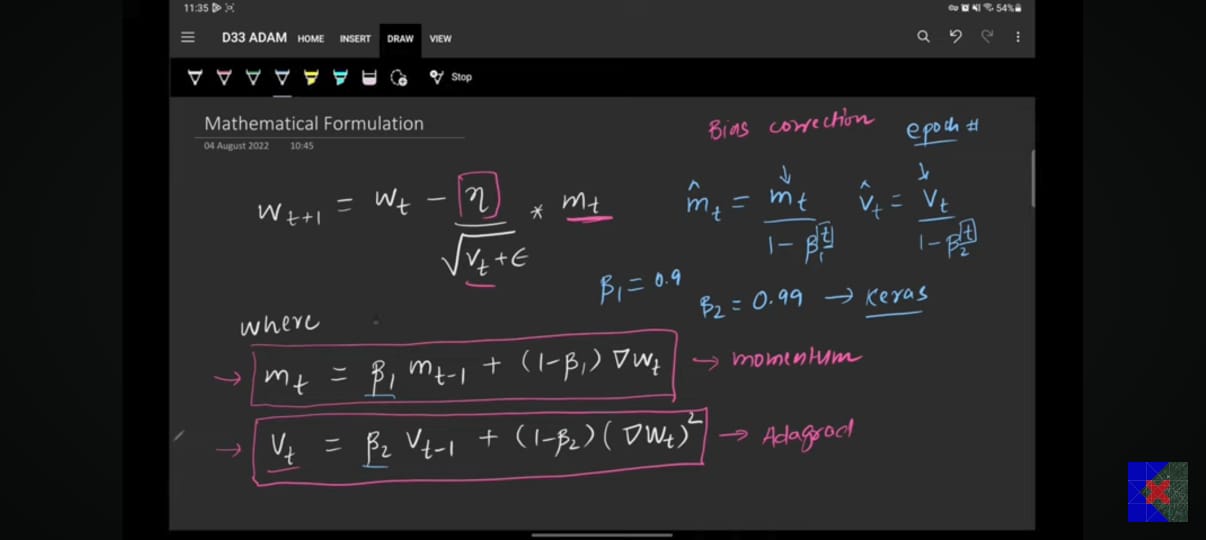 11:35 54%
D33 ADAM HOME INSERT DRAW VIEW
Stop
Mathematical Formulation
04 August 2022 10:45
Bias correction epoch #
w_{t+1} = w_t - η / √(v_t + ε) * m_t
m̂_t = m_t / (1 - β_1^t) v̂_t = v_t / (1 - β_2^t)
β_1 = 0.9 β_2 = 0.99 → keras
where
→ m_t = β_1 m_{t-1} + (1-β_1) ∇w_t → momentum
→ v_t = β_2 v_{t-1} + (1-β_2) (∇w_t)^2 → Adagrad